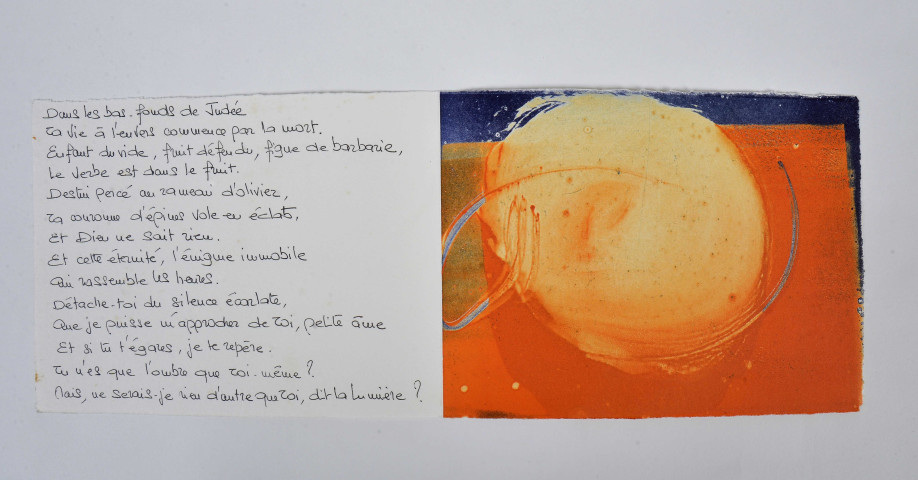 Dans les bas-fonds de Judée
ta vie à l'envers commence par la mort.
Enfant du vide, fruit défendu, figue de barbarie,
Le Verbe est dans le fruit.
Destin percé au rameau d'olivier,
ta couronne d'épines vole en éclats,
Et Dieu ne sait rien.
Et cette éternité, l'énigme immobile
Qui rassemble les heures.
Détache-toi du silence écarlate,
Que je puisse m'approcher de toi, petite âme
Et si tu t'égares, je te repère.
Tu n'es que l'ombre que toi-même ?
Mais, ne serais-je rien d'autre que toi, dit la lumière ?